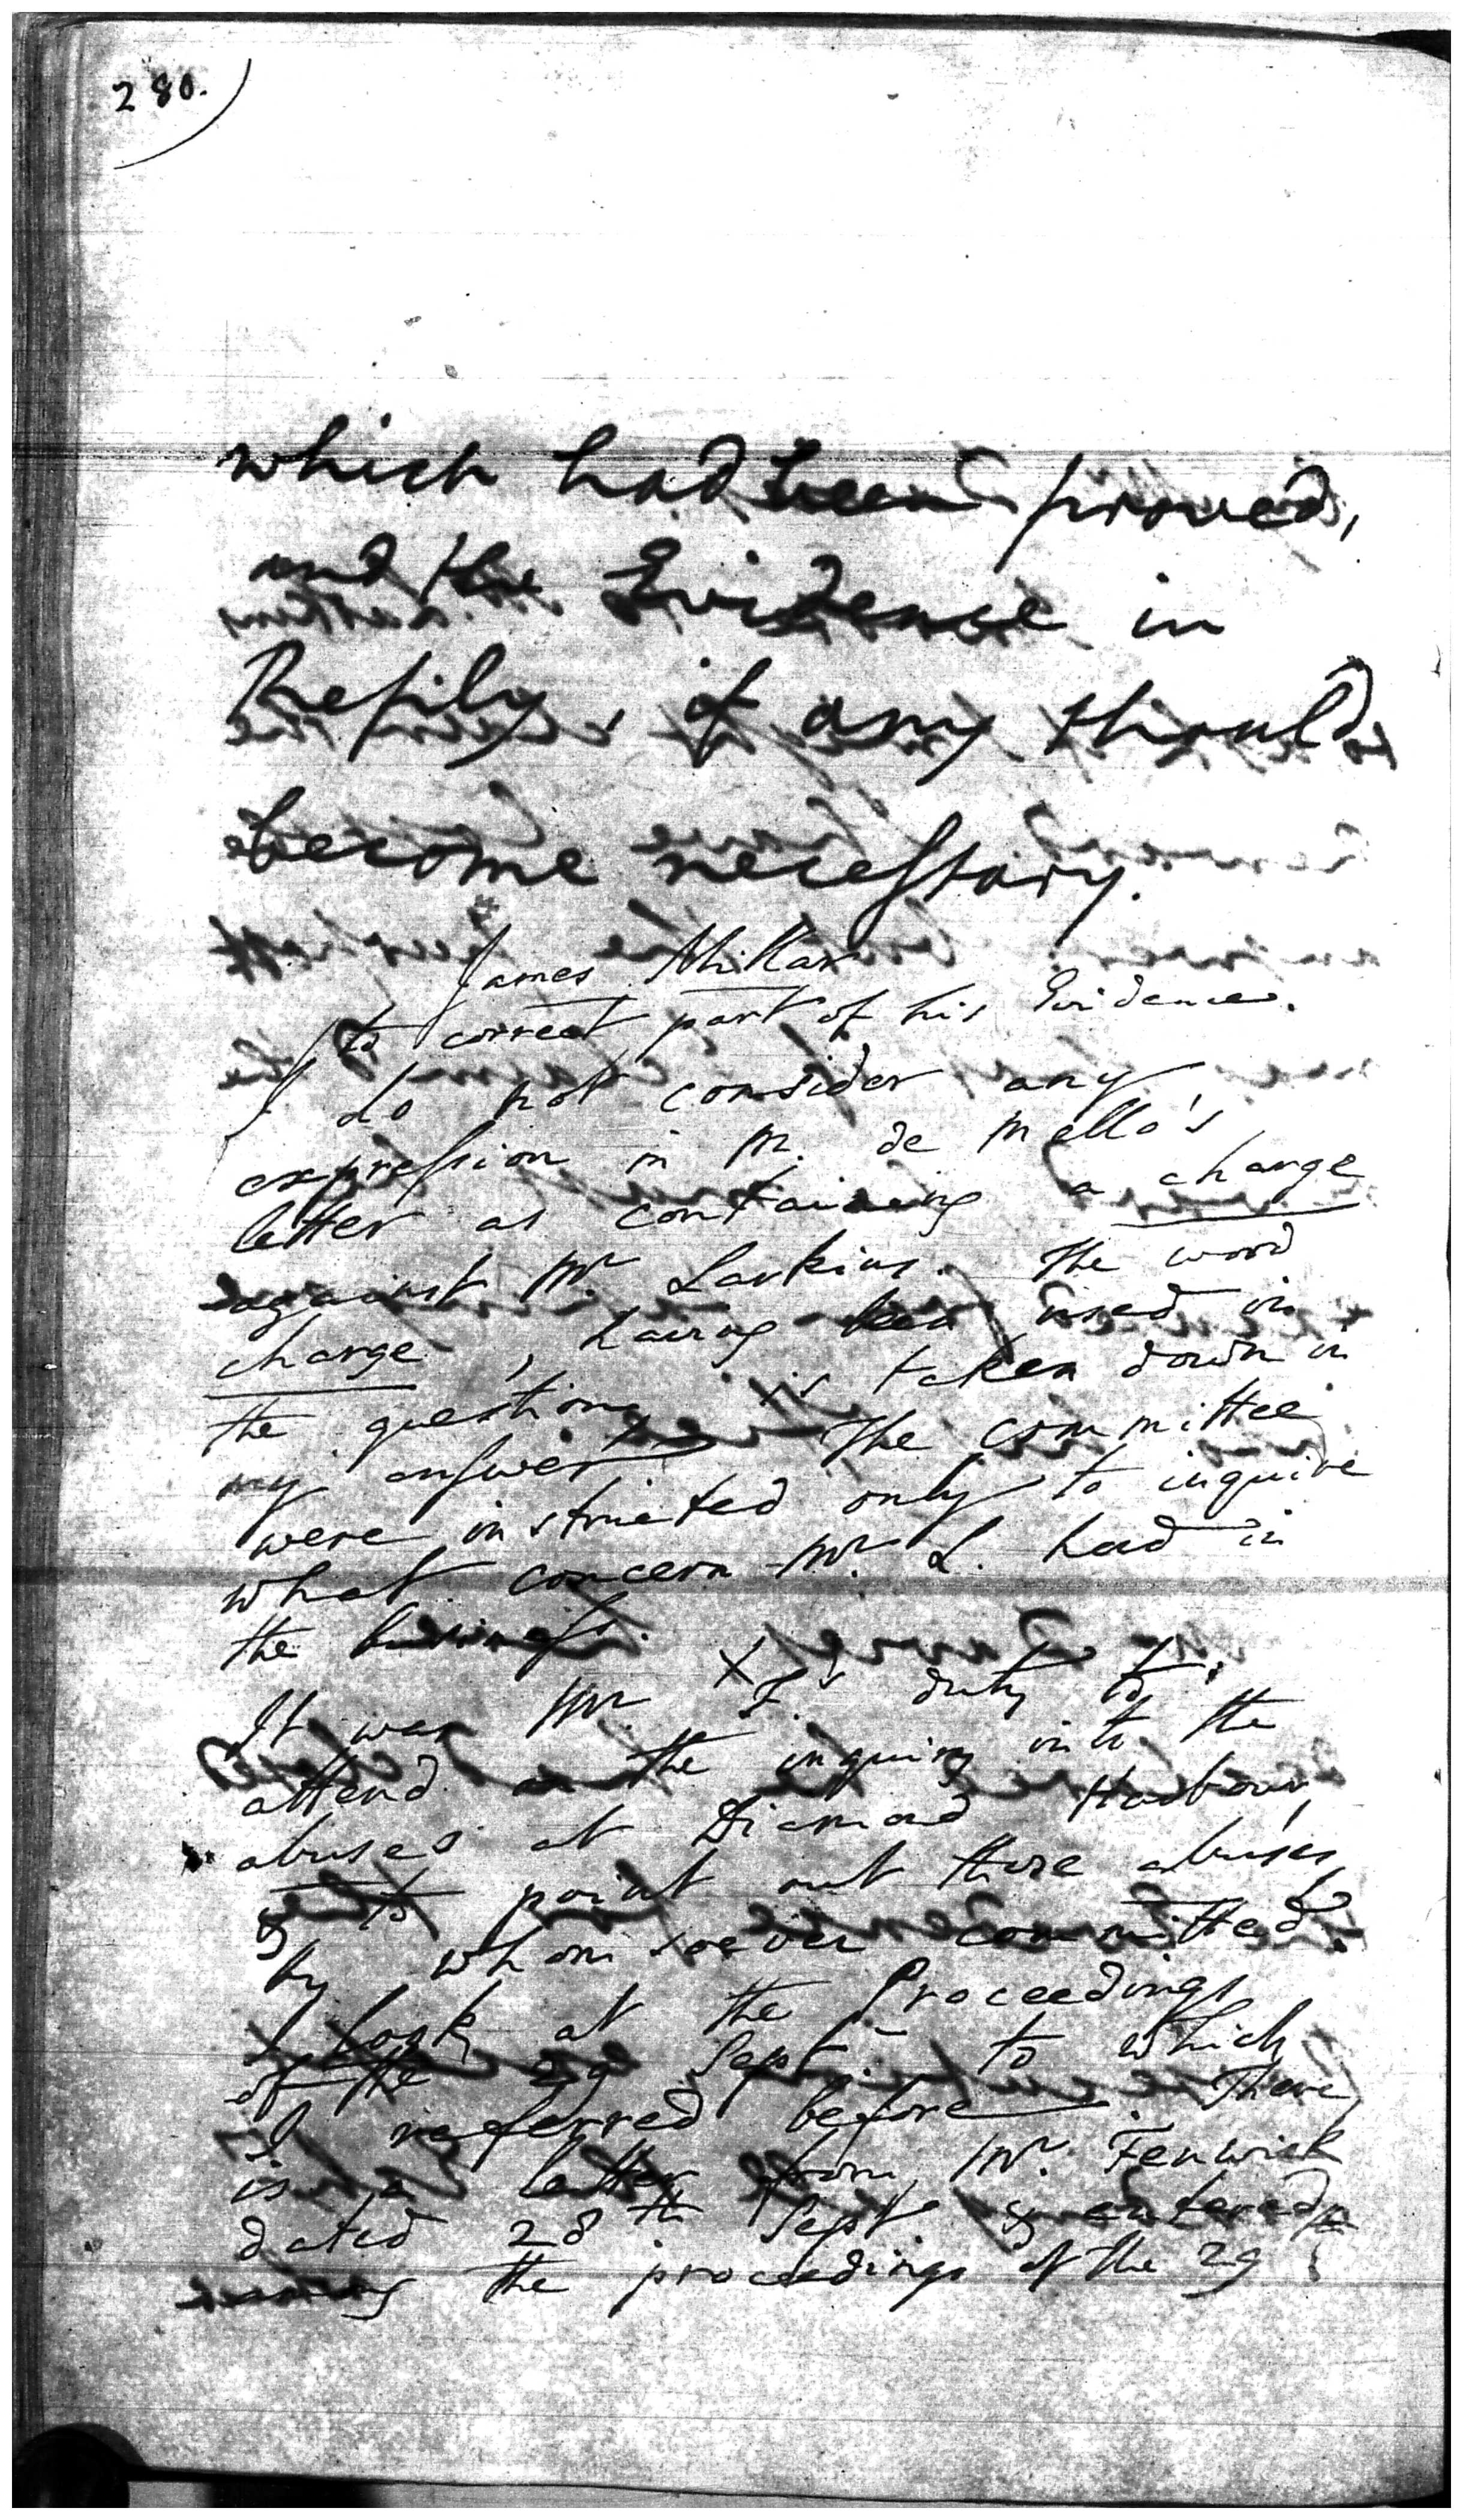 280.
which had been proved,
and the Evidence in
Reply, if any should
become necessary.
James Millar
to correct part of his Evidence.
I do not consider any
expression in M. de Mello's
letter as containing a charge
against Mr. Larkins. The word
charge, having been used in
the question, is taken down in
my answer. The Committee
were instructed only to inquire
what concern Mr. L. had in
the business.
It was Mr. F's duty to
attend the inquiry into the
abuses at Diamond Harbour,
& to point out those abuses,
by whomsoever committed.
I look at the Proceedings
of the 29 Sept. to which
I referred before. There
is a letter from Mr. Fenwick
dated 28th Sept. & entered
the proceedings of the 29